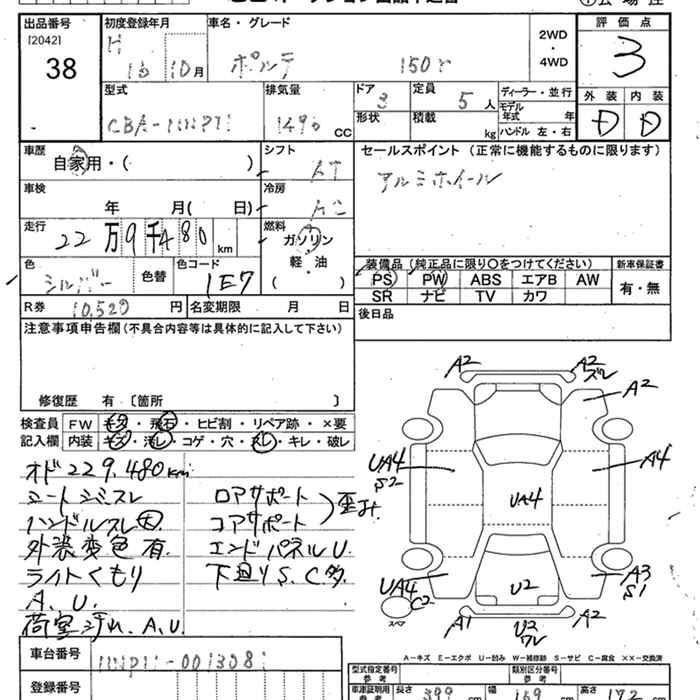 出品番号
[2042]
38
初度登録年月
H 16 10月
車名・グレード
ポルテ 150r
2WD
・
4WD
評価点
3
外装 内装
D D
型式
排気量
149 CC
ドア 3
形状
定員 5人
積載 kg
ディーラー・並行
モデル年式 年
ハンドル 左・右
車歴
自家用・( )
シフト
AT
車検
年 月( 日)
冷房
AC
走行
22万9千480km
燃料
ガソリン
軽・油
( )
色
シルバー
色替
色コード
1E7
R券 10,520 円
名変期限 月 日
セールスポイント (正常に機能するものに限ります)
アルミホイール
装備品 (純正品に限り○をつけてください)
新車保証書
PS PW ABS エアB AW
SR ナビ TV カワ
有・無
後日品
注意事項申告欄(不具合内容等は具体的に記入して下さい)
修復歴 有〔箇所 〕
検査員記入欄
FW キズ・飛石・ヒビ割・リペア跡・×要
内装 キズ・汚レ・コゲ・穴・スレ・キレ・破レ
オド229,480km
シートシミスレ
ハンドルスレ大
外装変色有.
ライトくもり
A.U.
荷室汚れ.A.U.
ロアサポート
コアサポート
歪み
エンドパネルU.
下廻りS.C多
A2 A2
ズレ
A2
UA4
S2
A4
UA4
UA4
C2
スペア
U2
A3
S1
A1 U2
ワレ
A2
A-キズ E-エクボ U-凹み W-補修跡 S-サビ C-腐食 ××-交換済
車台番号
登録番号
型式指定番号
参考
類別区分番号
参考
車庫証明用
参考
長さ 399 cm 幅 169 cm 高さ 172 cm